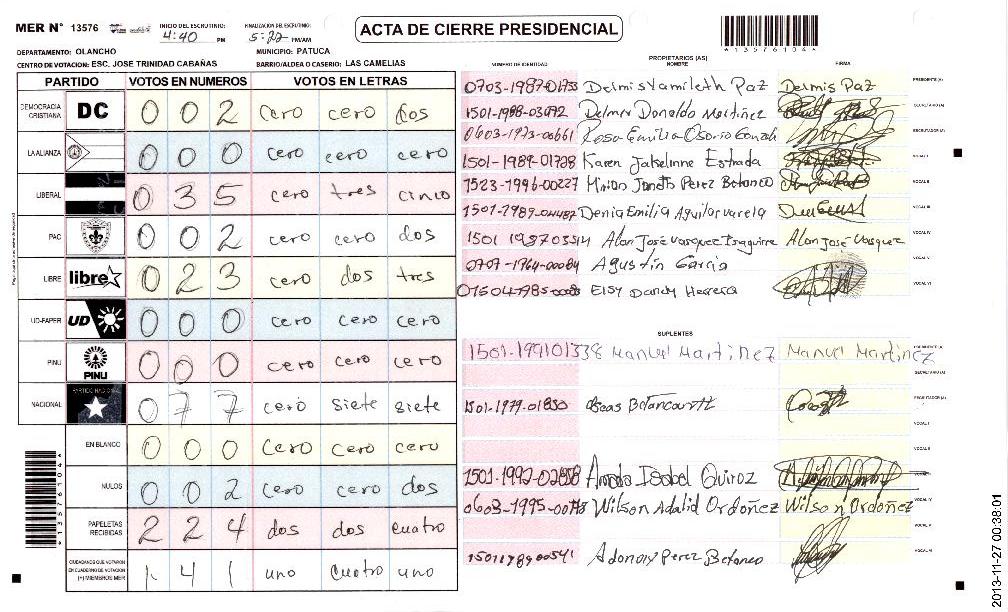 MER N° 13576
INICIO DEL ESCRUTINIO: 4:40 PM
FINALIZACIÓN DEL ESCRUTINIO: 5:22 PM/AM
ACTA DE CIERRE PRESIDENCIAL
DEPARTAMENTO: OLANCHO MUNICIPIO: PATUCA
CENTRO DE VOTACION: ESC. JOSE TRINIDAD CABAÑAS BARRIO/ALDEA O CASERIO: LAS CAMELIAS
PARTIDO VOTOS EN NUMEROS VOTOS EN LETRAS
DEMOCRACIA CRISTIANA DC 0 0 2 cero cero dos
LA ALIANZA 0 0 0 cero cero cero
LIBERAL 0 3 5 cero tres cinco
PAC 0 0 2 cero cero dos
LIBRE libre 0 2 3 cero dos tres
UD-FAPER UD 0 0 0 cero cero cero
PINU PINU 0 0 0 cero cero cero
NACIONAL PARTIDO NACIONAL 0 7 7 cero siete siete
EN BLANCO 0 0 0 cero cero cero
NULOS 0 0 2 cero cero dos
PAPELETAS RECIBIDAS 2 2 4 dos dos cuatro
CIUDADANOS QUE VOTARON EN CUADERNO DE VOTACION (+) MIEMBROS MER 1 4 1 uno cuatro uno
PROPIETARIOS (AS)
NUMERO DE IDENTIDAD NOMBRE FIRMA
Delmis Yamileth Paz Delmis Paz PRESIDENTE (A)
1501-1988-03092 Delmer Donaldo Martinez SECRETARIO (A)
0603-1973-00661 Rosa Emilia Osorio ESCRUTADOR (A)
1501-1989-01728 Karen Jakelinne Estrada VOCAL I
1523-1996-00227 Mirian Janeth Perez Betanco VOCAL II
Denia Emilia Aguilar Varela VOCAL III
Alan José Vasquez Izaguirre Alan José Vasquez VOCAL IV
0707-1964-00084 Agustín Garcia VOCAL V
Elsy Dandy Herrera VOCAL VI
SUPLENTES
1501-199101338 Manuel Martinez Manuel Martinez PRESIDENTE (A)
SECRETARIO (A)
1501-1979-01850 Oseas Betancourth ESCRUTADOR (A)
VOCAL I
VOCAL II
Amada Isabel Quiroz VOCAL III
Wilson Adalid Ordoñez Wilson Ordoñez VOCAL IV
VOCAL V
1501178900541 Adonay Perez Betanco VOCAL VI
13576104
2013-11-27 00:38:01